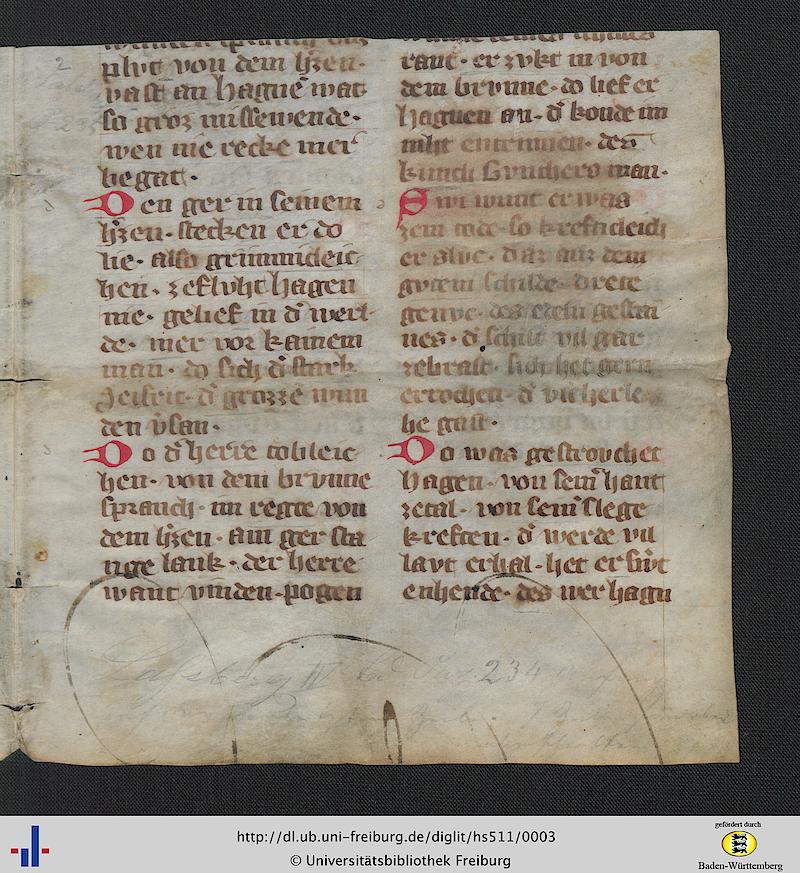 2
plvt von dem hˀzen·
vast an hagneˀ wat
so groz missewende·
wen nie recke merˀ
begat·
Den ger in seinem
hˀzen· stecken er do
lie· also grimmicleic
hen· zeflvht hagen
nie· gelief in dˀ werl
de· mer vor kainem
man· do sich dˀ stark
Seifrit· dˀ grozze wun
den vˀsan·
Do dˀ herre tobleic
hen· von dem brvnne
spranch· im regte von
dem hˀzen· ain ger sta
nge lank· der herre
want vinden· pogen
rant· er zvkt in von
dem brvnne· do lief er
haguen an· dˀ konde im
niht entrinnen· des
kunich Gunthers man·
Swi wunt er was
zem tode· so krefticleich
er slvc· daz auz dem
gvtem schilde· drete
genvc· des edeln gestai
nes· dˀ schilt vil gar
zebrast· sich het gern
errochen· dˀ vil herle
he gast·
Do was gestrovchet
hagen· von seinˀ hant
zetal· von seinˀ slege
kreften· dˀ werde vil
lavt erhal· het er swˀt
enhende· des wer hagn
Lassberg
234
http://dl.ub.uni-freiburg.de/diglit/hs511/0003
© Universitätsbibliothek Freiburg
gefördert durch
Baden-Württemberg